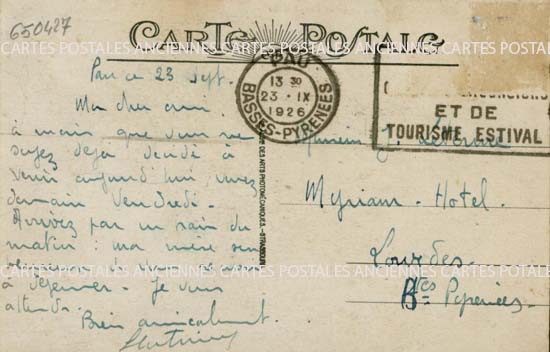 650427
CARTE POSTALE
CARTES POSTALES ANCIENNES CARTES POSTALES ANCIENNES CARTES POSTALES ANCIENNES
PAU
13 30
23 · IX
1926
BASSES-PYRENEES
ET DE
TOURISME ESTIVAL
Pau ce 23 Sept.
Mon cher ami.
à moins que vous ne
soyez déjà décidé à
venir aujourd'hui venez
demain Vendredi.
Arrivez par un train du
matin : ma mère
à déjeuner. Je vous
attends.
Bien amicalement.
DES ARTS PHOTOMÉCANIQUES - STRASBOURG
Monsieur J.
Myriam - Hotel.
Lourdes.
Btes Pyrenées
CARTES POSTALES ANCIENNES CARTES POSTALES ANCIENNES CARTES POSTALES ANCIENNES